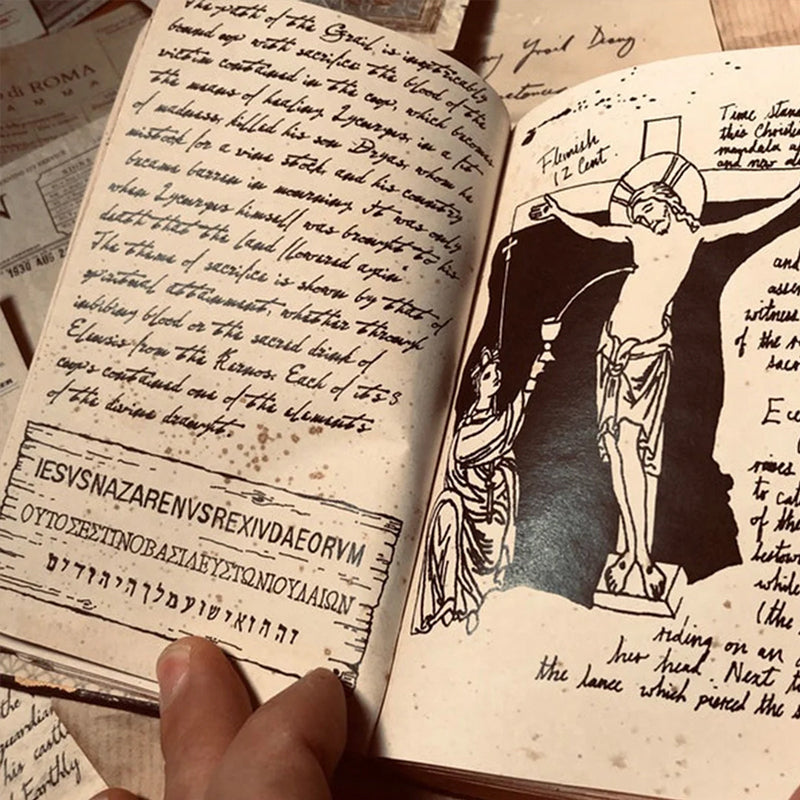 The path of the Grail, is inextricably
bound up with sacrifice the blood of the
victim contained in the cup, which becomes
the means of healing Lycurgus, in a fit
of madness, killed his son Dryas, whom he
mistook for a vine stock, and his country
became barren in mourning. It was only
when Lycurgus himself was brought to his
death that the land flowered again"
The theme of sacrifice is shown by that of
spiritual attainment, whether through
imbibing blood or the sacred drink of
Eleusis from the Kernos. Each of it's 3
cups contained one of the elements
of the divine draught.
IESVSNAZARENVSREXIVDAEORVM
ΟΥΤΟΣΕΣΤΙΝΟΒΑΣΙΛΕΥΣΤΩΝΙΟΥΔΑΙΩΝ
זההואישועמלךהיהודים
Flemish
12 Cent.
Time stan
this Christi
mandala a
and now al
and
asse
witness
of the
sacr
to cat
of the
bestow
while
(the
riding on an
her head. Next t
the lance which pierced the s
di ROMA
1930 AGO 2
Grail Diary
the
guardian
his castle
Earthly